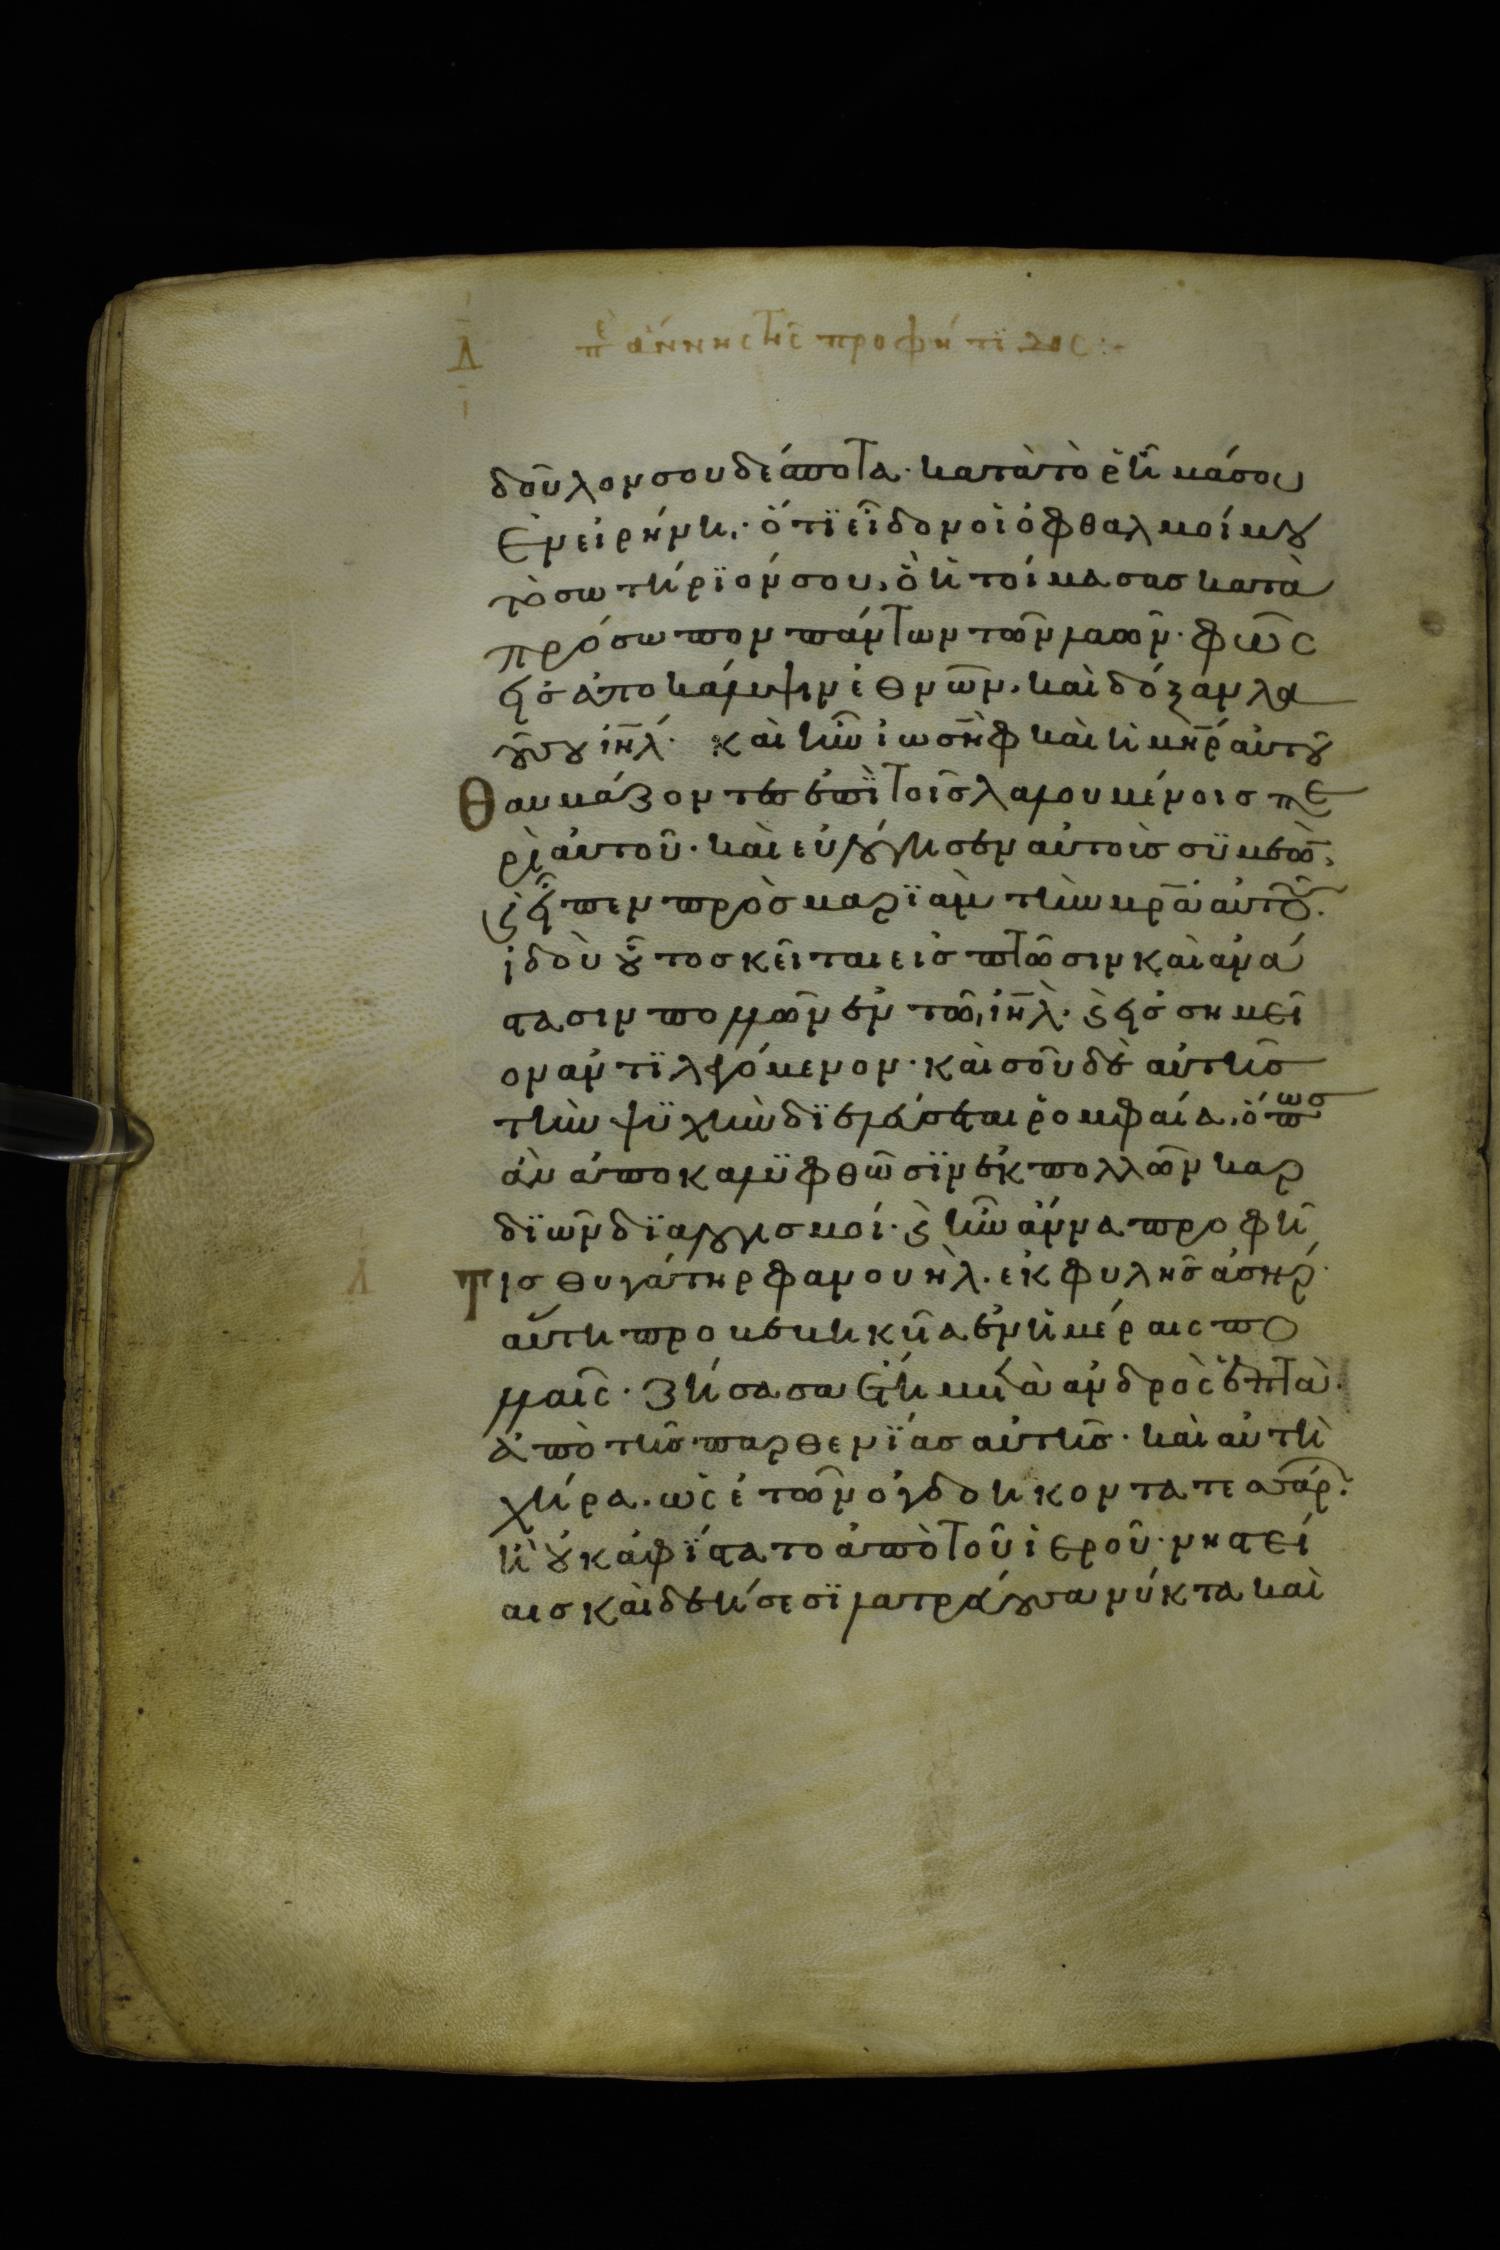 Δ πε ἄννης τῆς προφήτϊδος:-
δοῦλον σου δέσποτα· κατὰ τὸ ῥῆμά σου
ἐν εἰρήνη,· ὅτϊ εἶδον οἱ ὀφθαλμοί μου
τὸ σωτήρϊόν σου, ὃ ἡτοίμασας κατὰ
πρόσωπον πάντων τῶν λαῶν· φῶς
εἰς ἀποκάλυψιν ἐθνῶν, καὶ δόξαν λα
οῦ σου ἰηλ· καὶ ἦν ἰωσὴφ καὶ ἡ μηρ αὐτοῦ
θαυμάζοντες ἐπῒ τοῖς λαλουμένοις πε
ρὶ αὐτοῦ· καὶ εὐλόγησεν αὐτοὺς σϋμεὼν,
ϛ εἶπεν πρὸς μαρϊὰμ τὴν μρα αὐτοῦ.
ἰδοὺ οὗτος κεῖται εἰς πτῶσιν καὶ ἀνά
στασιν πολλῶν ἐν τῶ, ἰηλ· ϛ εἰς σημεῖ
ον ἀντϊλεγόμενον· καὶ σοῦ δὲ αὐτῆς
τὴν ψϋχὴν δϊελεύσεται ῥομφαία, ὅπως
ἂν ἀποκαλϋφθῶσϊν ἐκ πολλῶν καρ
δϊῶν δϊαλογισμοί· ϛ ἦν ἄννα προφῆ
τις θυγάτηρ φανουὴλ· ἐκ φυλῆς ἀσήρ·
αὕτη προβεβηκῆα ἐν ἡμέραις πο
λλαῖς· ζήσασα ἔτη μετὰ ἀνδρὸς ἑπτὰ·
ἀπὸ τῆς παρθενϊάς αὐτῆς· καὶ αὐτὴ
χήρα, ὡς ἐτῶν ὀγδοήκοντατεσσάρ·
ἣ οὐκ ἀφϊστατο ἀπὸ τοῦ ἱεροῦ· νηστεί
αις καὶ δεήσεσϊ λατρεύουσα νύκτα καὶ